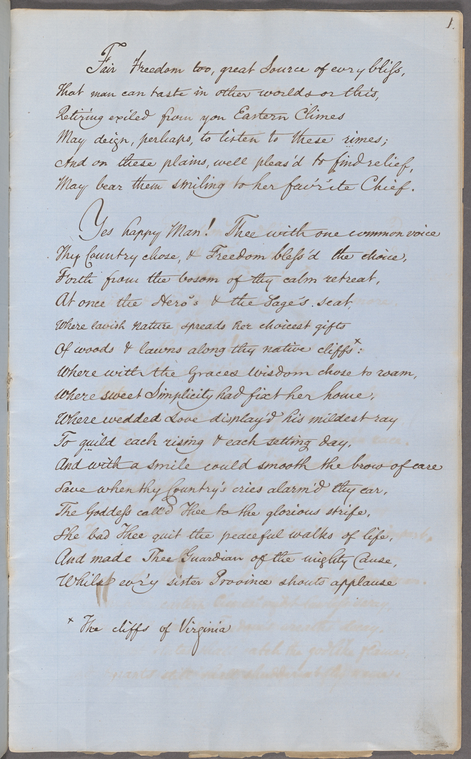 1.
Fair Freedom too, great Source of ev'ry bliss,
That man can taste in other worlds or this,
Retiring exiled from yon Eastern Climes
May deign, perhaps, to listen to these rimes;
And on these plains, well pleas'd to find relief,
May bear them smiling to her fav'rite Chief.
Yes happy Man! Thee with one common voice
Thy Country chose, & Freedom bless'd the choice,
Forth from the bosom of thy calm retreat,
At once the Hero's & the Sage's seat
Where lavish nature spreads her choicest gifts
Of woods & lawns along thy native cliffs*:
Where with the Graces Wisdom chose to roam,
Where sweet Simplicity had fixt her home,
Where wedded Love display'd his mildest ray
To guild each rising & each setting day,
And with a smile could smooth the brow of care
Save when thy Country's cries alarm'd thy ear,
The Goddess call'd Thee to the glorious strife,
She bad Thee quit the peaceful walks of life,
And made Thee Guardian of the mighty Cause,
Whilst ev'ry sister Province shouts applause
* The cliffs of Virginia